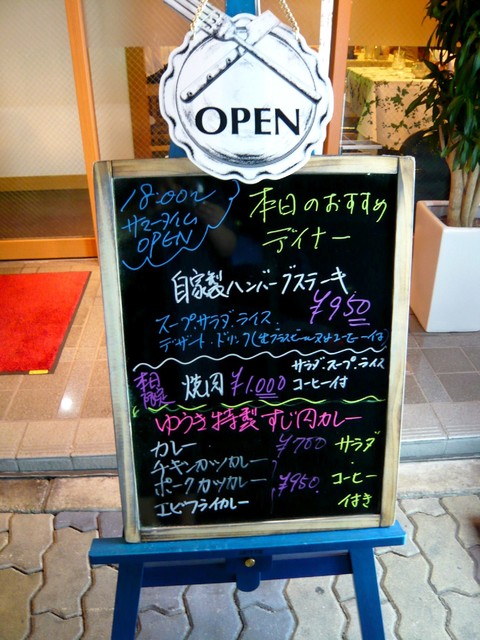 OPEN
18:00〜
サマータイム
OPEN
本日のおすすめ
ディナー
自家製ハンバーグステーキ
¥950
スープ・サラダ・ライス
デザート・ドリンク
本日
焼肉 ¥1.000
サラダ・スープ・ライス
コーヒー付
ゆうき特製すじ肉カレー
カレー ¥700 サラダ
チキンカツカレー
ポークカツカレー ¥950 コーヒー
エビフライカレー 付き